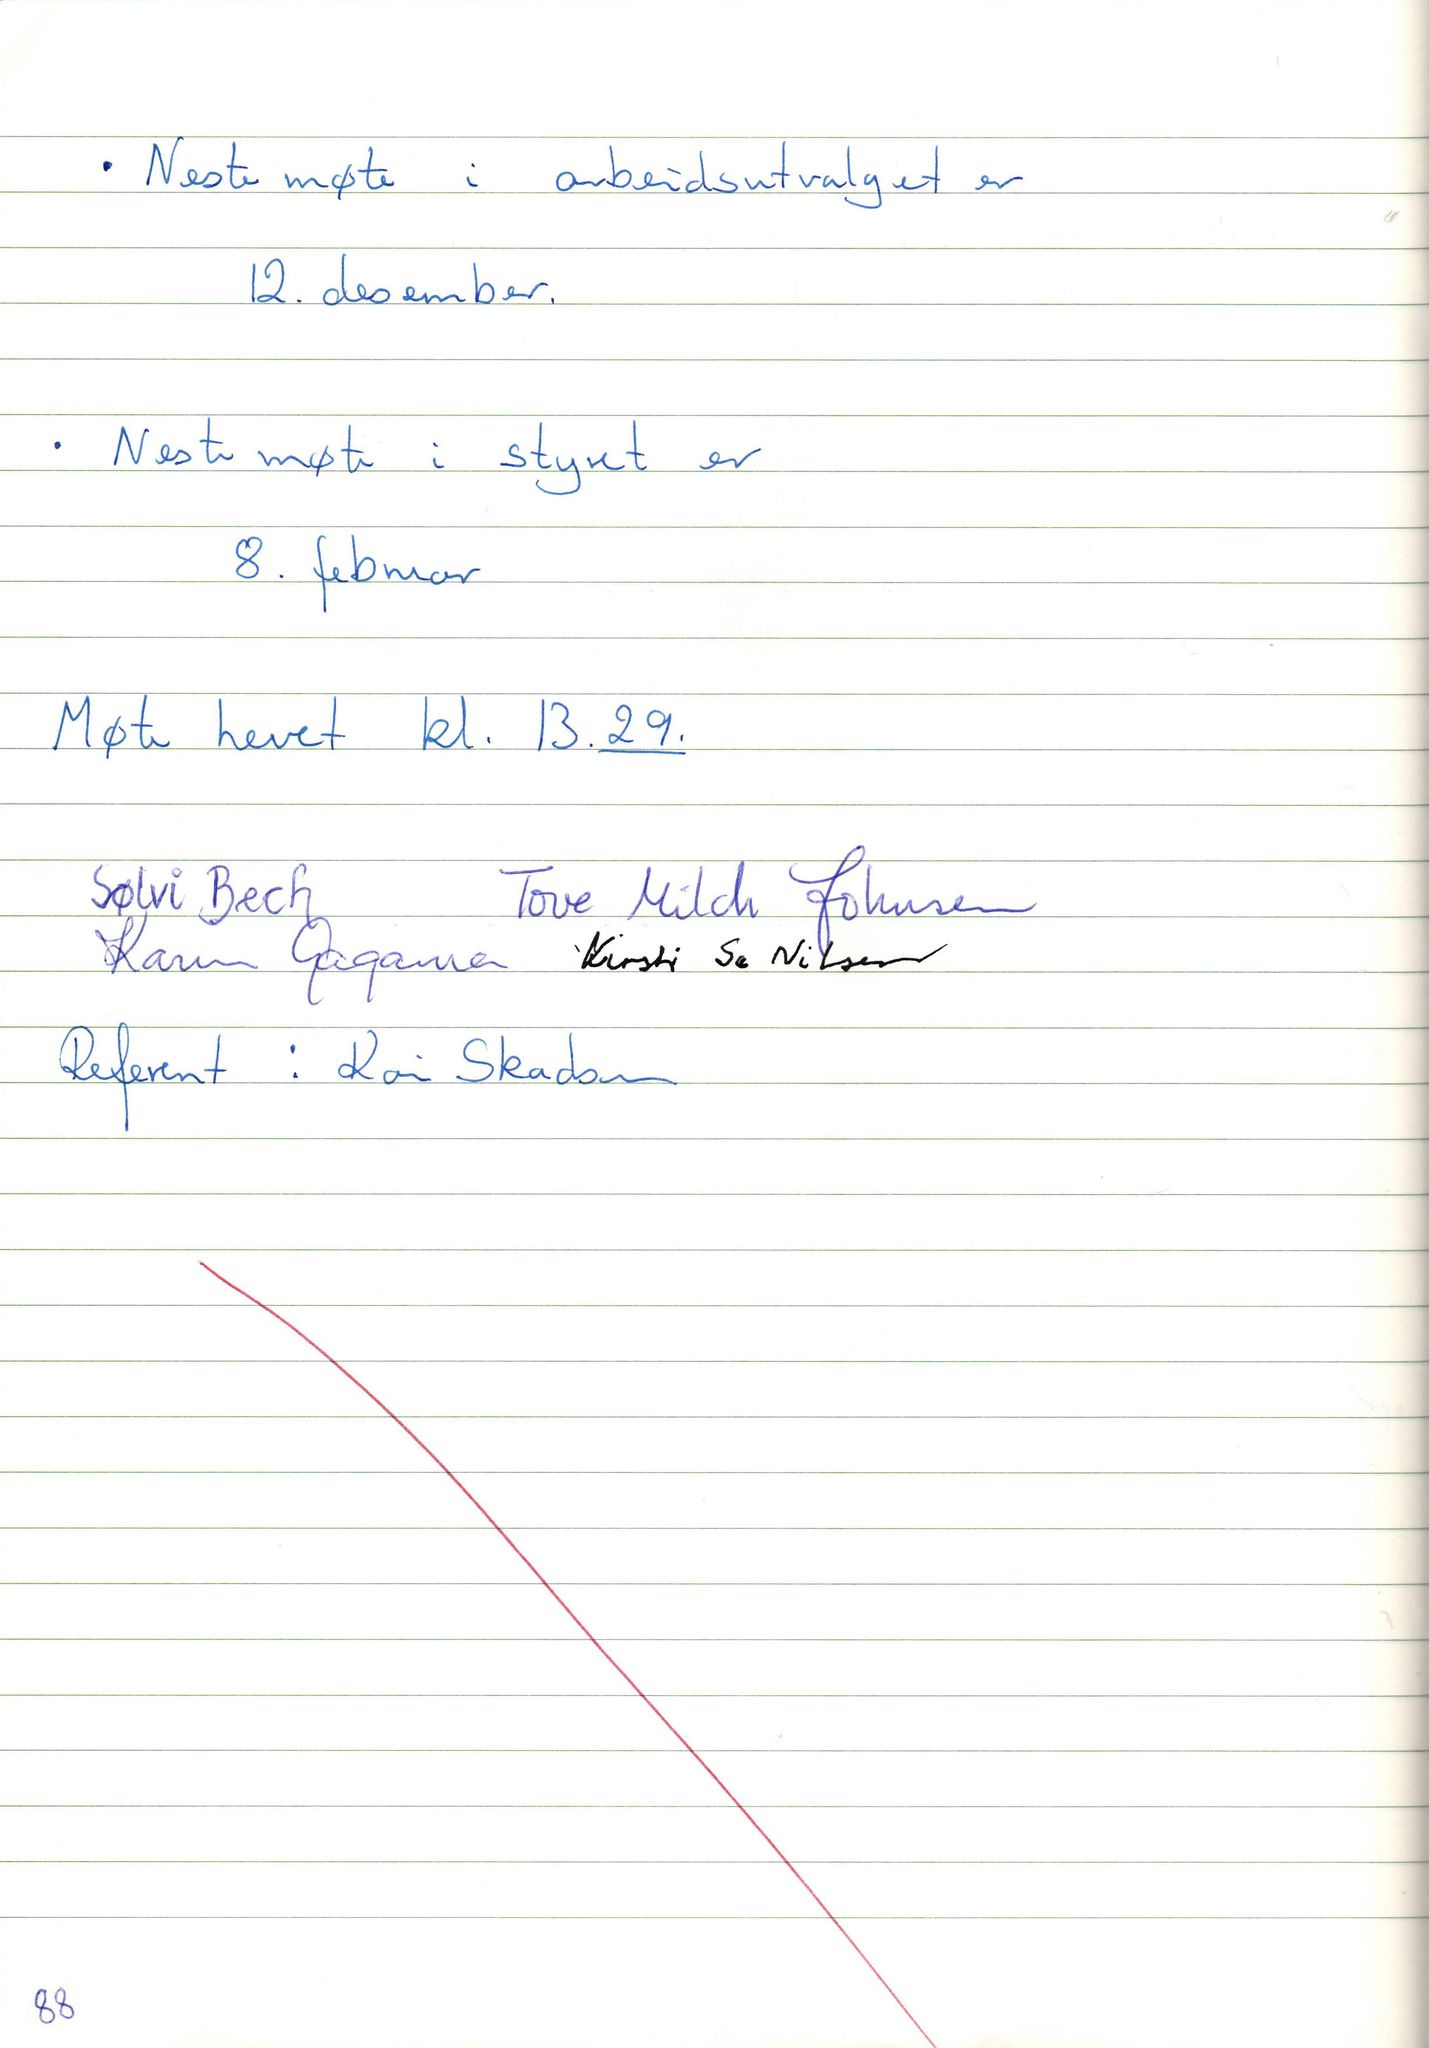 • Neste møte i arbeidsutvalget er
12. desember.
• Neste møte i styret er
8. februar
Møte hevet kl. 13.29.
Sølvi Bech Tove Milch Johnsen
Karin Kirsti Sø Nilsen
Referent : Kai
88